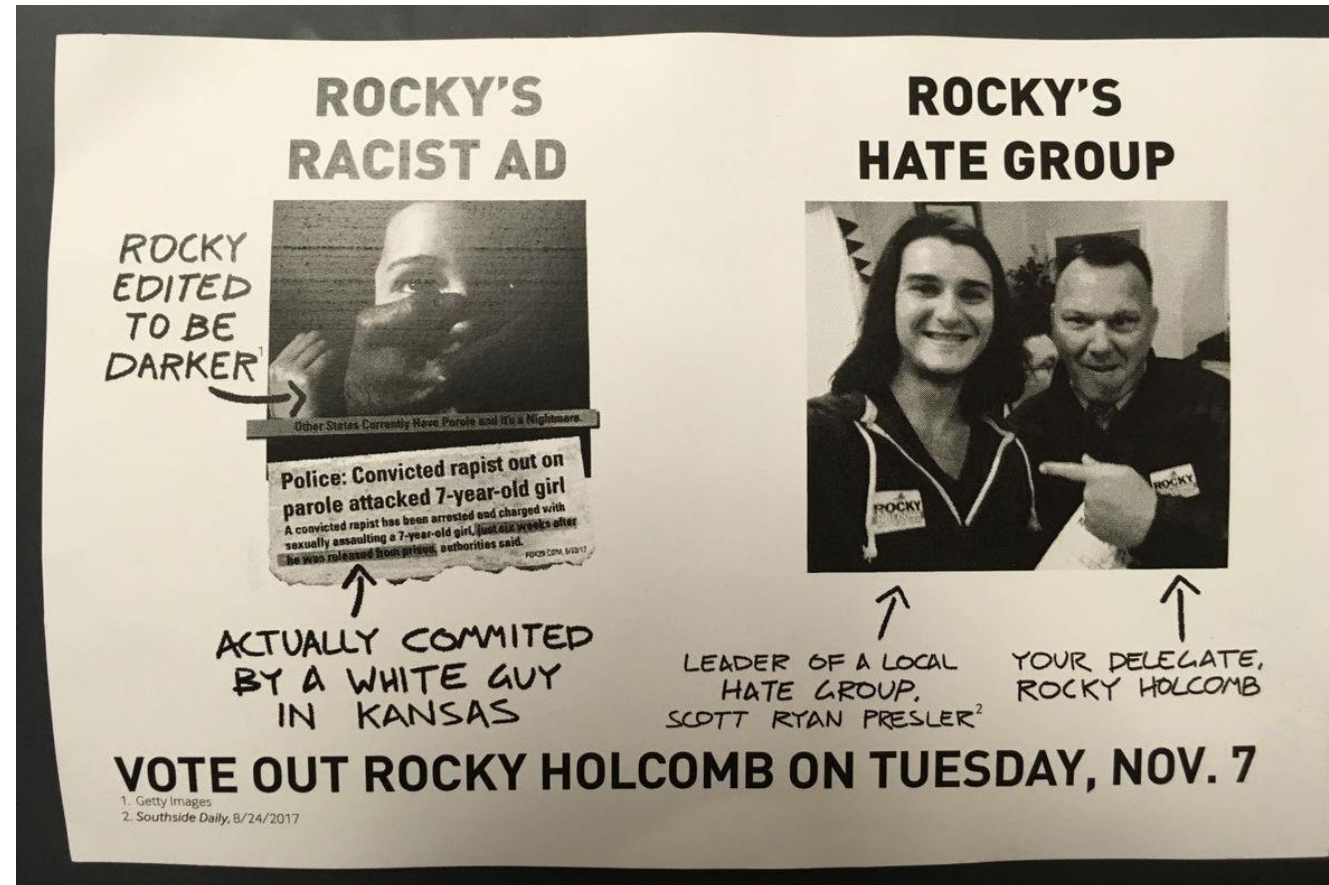 ROCKY'S
RACIST AD
ROCKY
EDITED
TO BE
DARKER¹
Other States Currently Have Parole and it's a Nightmare.
Police: Convicted rapist out on
parole attacked 7-year-old girl
A convicted rapist has been arrested and charged with
sexually assaulting a 7-year-old girl, just six weeks after
he was released from prison, authorities said.
FOX29.COM,
ACTUALLY COMMITED
BY A WHITE GUY
IN KANSAS
ROCKY'S
HATE GROUP
ROCKY
ROCKY
LEADER OF A LOCAL
HATE GROUP,
SCOTT RYAN PRESLER²
YOUR DELEGATE,
ROCKY HOLCOMB
VOTE OUT ROCKY HOLCOMB ON TUESDAY, NOV. 7
1. Getty Images
2. Southside Daily, 8/24/2017